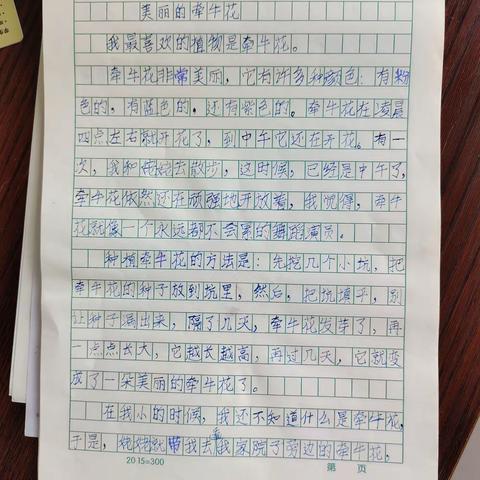 美丽的牵牛花
我最喜欢的植物是牵牛花。
牵牛花非常美丽，它有许多种颜色：有粉
色的，有蓝色的，还有紫色的。牵牛花在凌晨
四点左右就开花了，到中午它还在开花。有一
次，我和姥姥去散步，这时候，已经是中午了，
牵牛花依然还在顽强地开放着，我觉得，牵牛
花就像一个永远都不会累的舞蹈演员。
种植牵牛花的方法是：先挖几个小坑，把
牵牛花的种子放到坑里，然后，把坑填平，别
让种子漏出来，隔了几天，牵牛花发芽了，再
一点点长大，它越长越高，再过几天，它就变
成了一朵美丽的牵牛花了。
在我小的时候，我还不知道什么是牵牛花，
于是，姥姥就带我去看我家院子旁边的牵牛花，
20·15=300
第 页